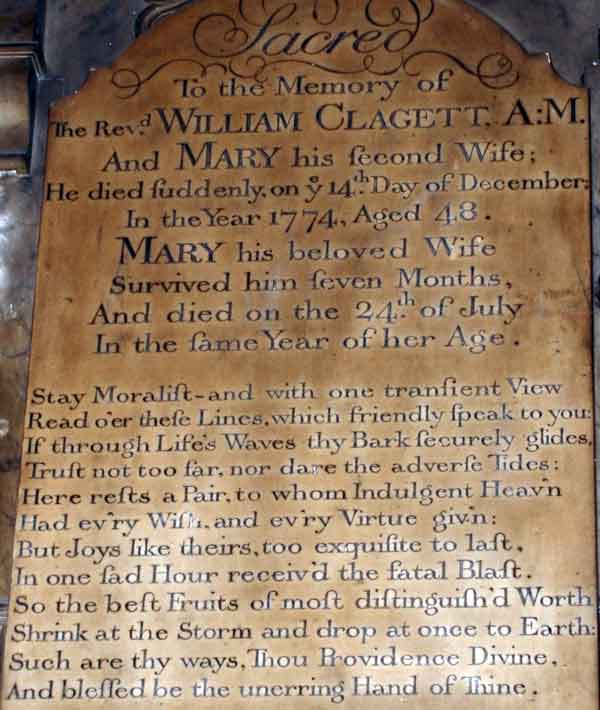 Sacred
To the Memory of
The Rev.d WILLIAM CLAGETT, A:M.
And MARY his ſecond Wife;
He died ſuddenly, on ye 14.th Day of December;
In the Year 1774, Aged 48.
MARY his beloved Wife
Survived him ſeven Months,
And died on the 24.th of July
In the ſame Year of her Age.
Stay Moraliſt-and with one tranſient View
Read o'er theſe Lines, which friendly ſpeak to you:
If through Life's Waves thy Bark ſecurely glides,
Truſt not too far, nor dare the adverſe Tides:
Here reſts a Pair, to whom Indulgent Heav'n
Had ev'ry Wiſh, and ev'ry Virtue giv'n:
But Joys like theirs, too exquiſite to laſt,
In one ſad Hour receiv'd the fatal Blaſt.
So the beſt Fruits of moſt diſtinguiſh'd Worth
Shrink at the Storm and drop at once to Earth:
Such are thy ways, Thou Providence Divine,
And bleſſed be the unerring Hand of Thine.